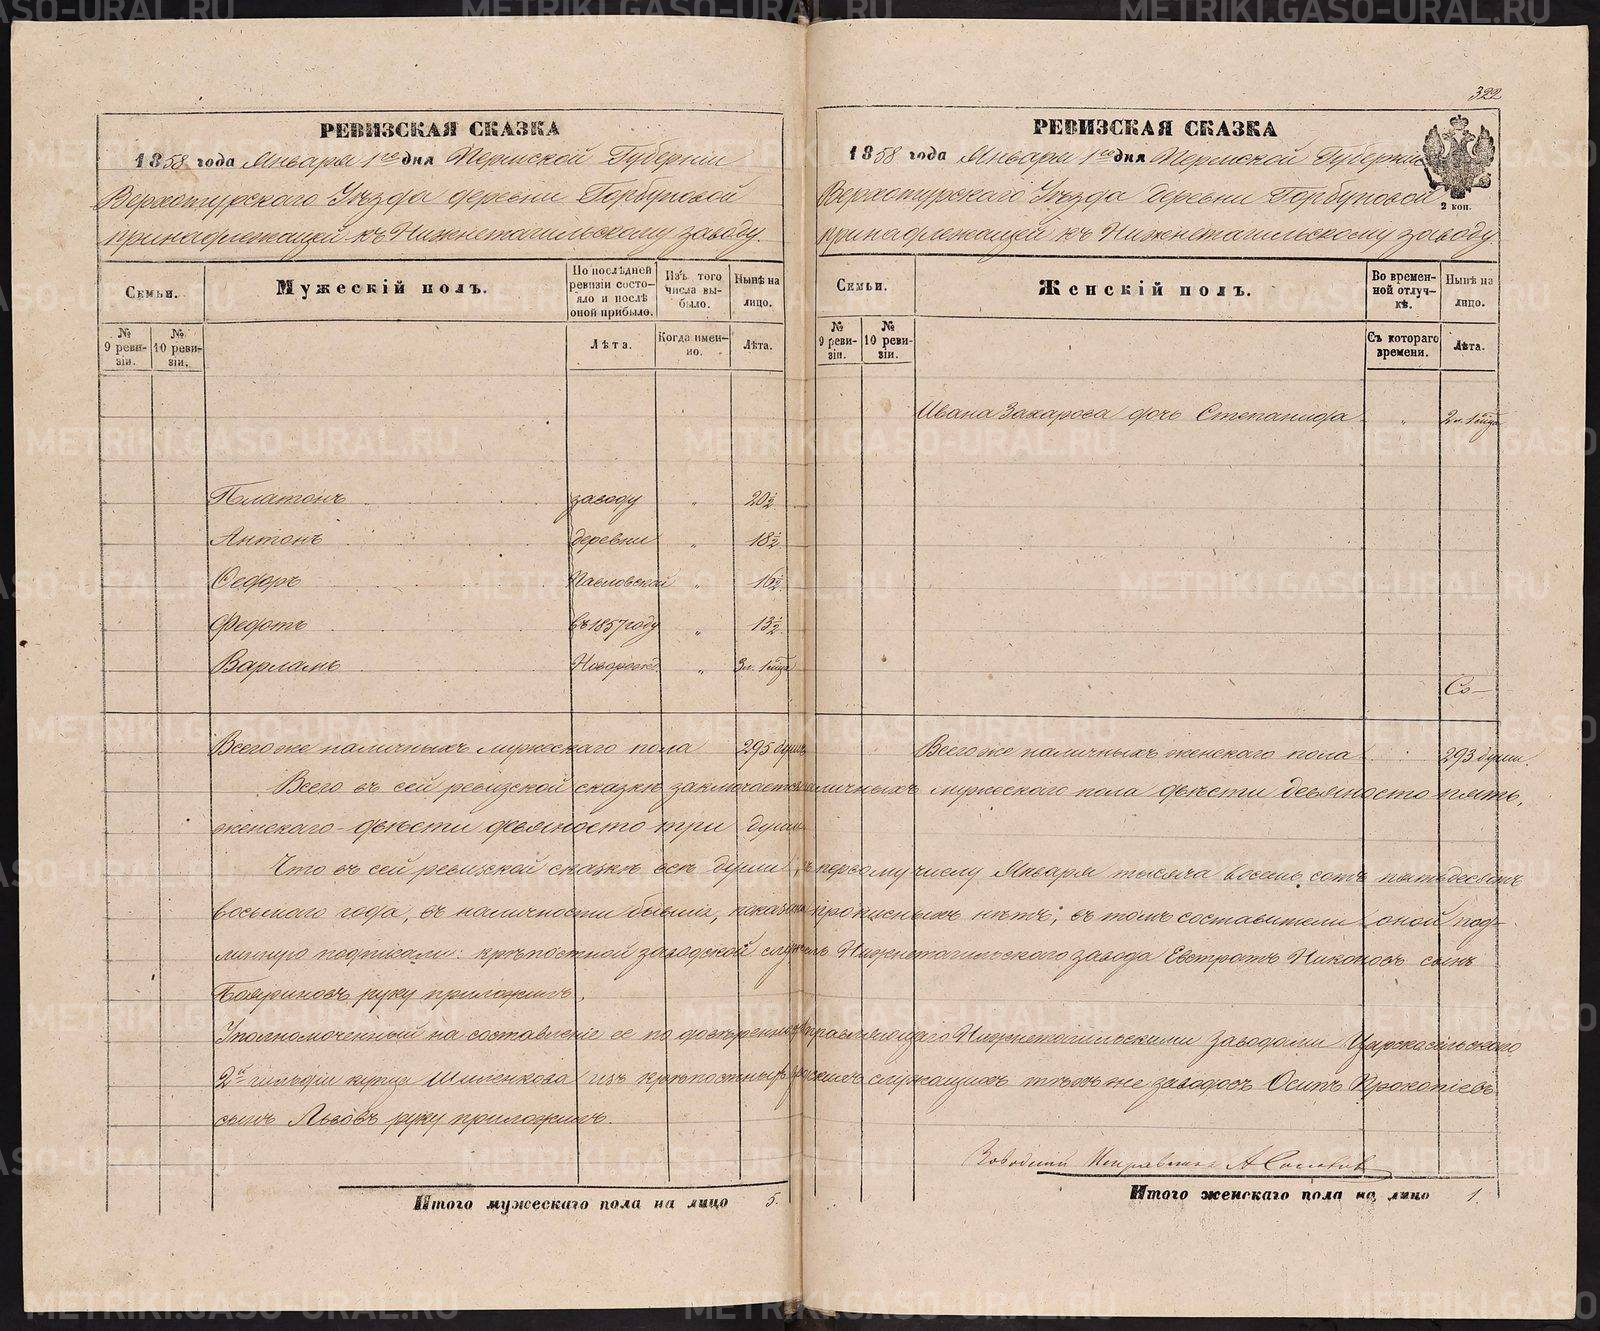 322
РЕВИЗСКАЯ СКАЗКА
1858 года Января 1го дня Пермской Губерніи
Верхотурскаго Уѣзда деревни Горбуновой
принадлежащей къ Нижнетагильскому заводу.
Семьи.
Мужескій полъ.
По послѣдней ревизіи состояло и послѣ оной прибыло.
Изъ того числа выбыло.
Нынѣ на лицо.
№ 9 ревизіи.
№ 10 ревизіи.
Лѣта.
Когда именно.
Лѣта.
Платонъ заводу " 20½
Антонъ деревни " 18½
Ѳедоръ Павловской " 16½
Федотъ въ 1857 году " 13½
Варламъ Новорожд. " 3 л. 1 мѣца
Всего же наличныхъ мужескаго пола 295 душъ
РЕВИЗСКАЯ СКАЗКА
1858 года Января 1го дня Пермской Губерніи
Верхотурскаго Уѣзда деревни Горбуновой
принадлежащей къ Нижнетагильскому заводу
2 коп.
Семьи.
Женскій полъ.
Во временной отлучкѣ.
Нынѣ на лицо.
№ 9 ревизіи.
№ 10 ревизіи.
Съ котораго времени.
Лѣта.
Ивана Захарова дочь Степанида " 2 л. 1 мѣца
Со—
Всего же наличныхъ женскаго пола 293 души.
Всего въ сей ревизской сказкѣ заключается наличныхъ мужескаго пола двѣсти девяносто пять,
женскаго - двѣсти девяносто три души
Что въ сей ревизской сказкѣ всѣ души, къ первому числу Января тысяча восемь сотъ пятьдесятъ
восьмаго года, въ наличности бывшія, показаны и прописныхъ нѣтъ; въ томъ составители оной под-
линную подписали: крѣпостной заводской служитель Нижнетагильскаго завода Евстратъ Никоновъ сынъ
Бояриновъ руку приложилъ.
Уполномоченный на составленіе ее по довѣренности управляющаго Нижнетагильскими заводами Царскосельскаго
2й гильдіи купца Шиленкова изъ крѣпостныхъ заводскихъ служащихъ тѣхъ же заводовъ Осипъ Прокопіевъ
сынъ Львовъ руку приложилъ.
Заводскій Исправникъ А.
Итого мужескаго пола на лицо 5.
Итого женскаго пола на лицо 1.
METRIKI.GASO-URAL.RU